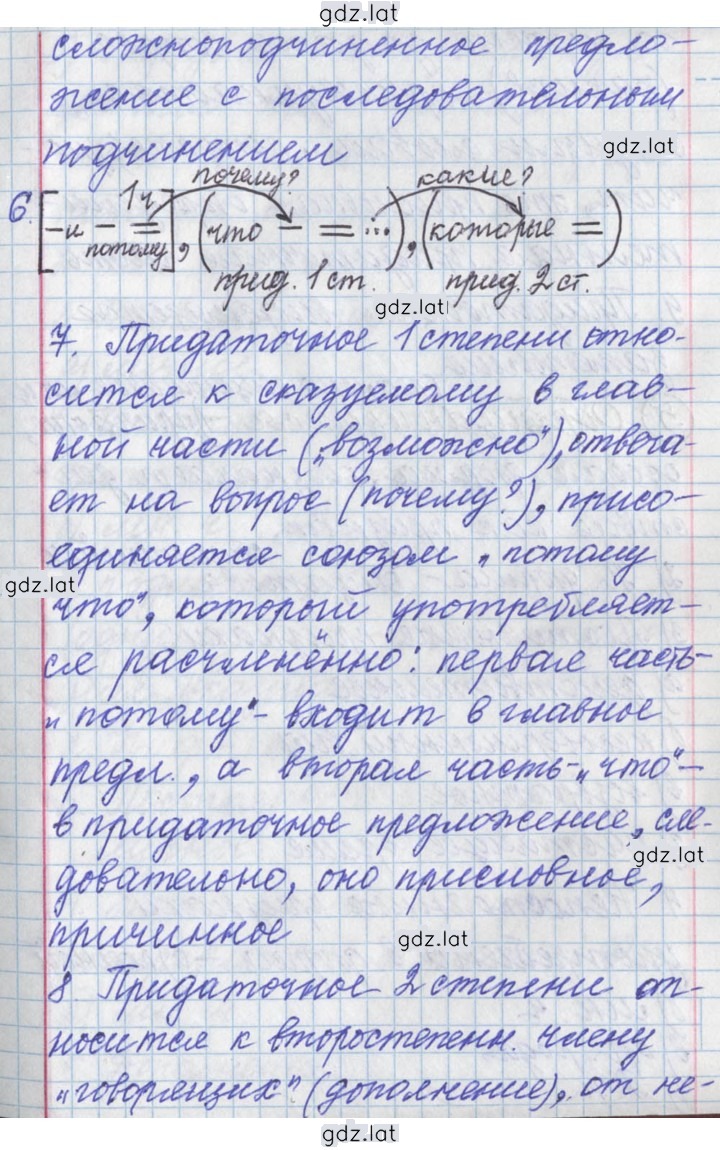 gdz.lat
сложноподчиненное предло-
жение с последовательным
gdz.lat
подчинением
почему? какие?
6. [– и – 1ч = потому], (что – = ...), (которые =)
прид. 1 ст. прид. 2 ст.
gdz.lat
7. Придаточное 1 степени отно-
сится к сказуемому в глав-
ной части („возможно"), отвеча-
ет на вопрос (почему?), присо-
единяется союзом „потому
gdz.lat
что", который употребляет-
ся расчленённо: первая часть-
„потому"- входит в главное
предл., а вторая часть-„что"-
в придаточное предложение, сле-
gdz.lat
довательно, оно присловное,
причинное
gdz.lat
8 Придаточное 2 степени от-
носится к второстепенн. члену
„говорящих" (дополнение), от не-
gdz.lat